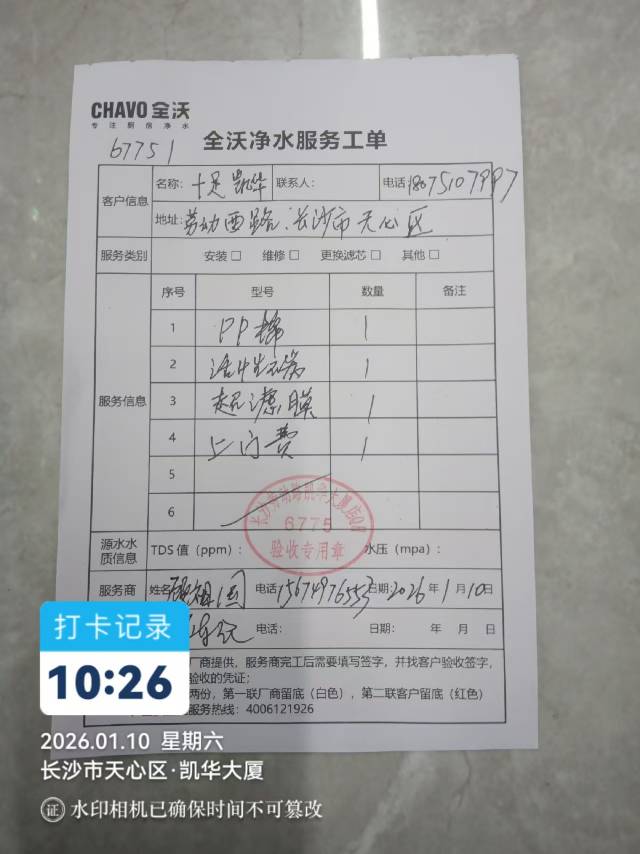 CHAVO 全沃
专注厨房净水
67751
全沃净水服务工单
客户信息
名称: 十足 凯华 联系人: 电话
地址: 劳动西路.长沙市天心区
服务类别 安装□ 维修□ 更换滤芯□ 其他□
服务信息
序号 型号 数量 备注
1 PP棉 1
2 活性炭 1
3 超滤膜 1
4 上门费 1
5
6
6775
验收专用章
源水水质信息 TDS 值（ppm）: 水压（mpa）:
服务商 姓名 国 电话 15674976553 日期: 2026 年 1 月 10 日
电话: 日期: 年 月 日
厂商提供，服务商完工后需要填写签字，并找客户验收签字，
验收的凭证；
两份，第一联厂商留底（白色），第二联客户留底（红色）
服务热线：4006121926
打卡记录
10:26
2026.01.10 星期六
长沙市天心区·凯华大厦
证 水印相机已确保时间不可篡改